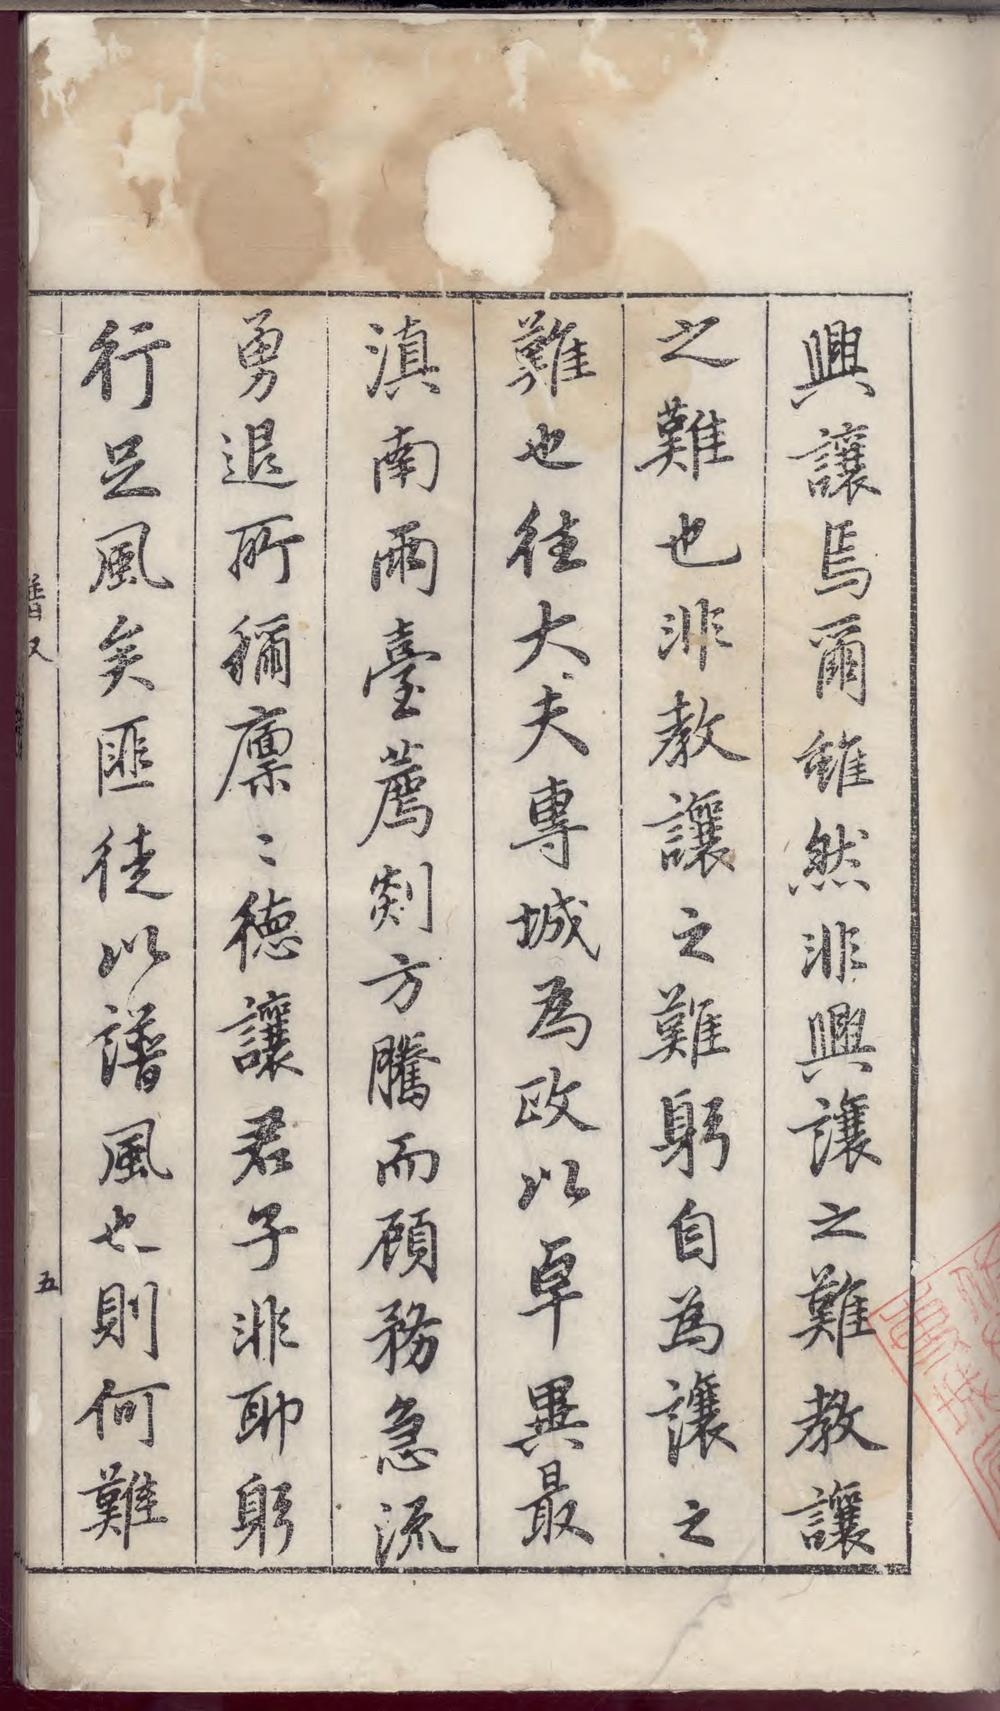 興讓焉爾雖然非興讓之難教讓
之難也非教讓之難躬自為讓之
難也往大夫專城為政以卓異最
滇南兩臺薦剡方騰而顧務急流
勇退所稱廪〻德讓君子非耶躬
行足風矣匪徒以譜風也則何難
五